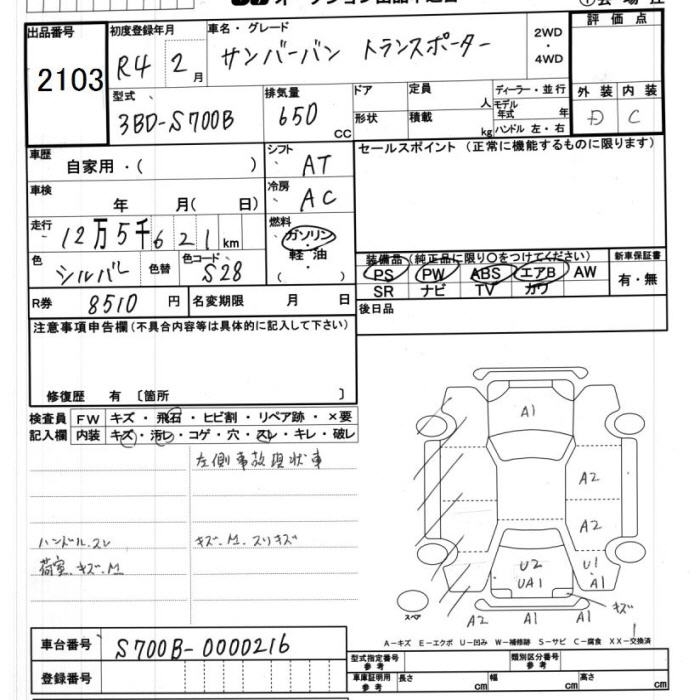 出品番号
2103
初度登録年月
R4 2月
車名・グレード
サンバーバン トランスポーター
2WD
・
4WD
評価点
外装 内装
D C
型式
3BD-S700B
排気量
650 CC
ドア
形状
定員 人
積載 kg
ディーラー・並行
モデル年式 年
ハンドル 左・右
車歴
自家用・( )
シフト
AT
セールスポイント (正常に機能するものに限ります)
車検
年 月( 日)
冷房
AC
走行
12万5千621km
燃料
ガソリン
・
軽油
( )
色
シルバー
色替
色コード
S28
装備品 (純正品に限り○をつけてください)
PS PW ABS エアB AW
SR ナビ TV カワ
新車保証書
有・無
R券 8510 円
名変期限 月 日
後日品
注意事項申告欄(不具合内容等は具体的に記入して下さい)
修復歴 有 〔箇所 〕
検査員
記入欄
FW キズ・飛石・ヒビ割・リペア跡・×要
内装 キズ・汚レ・コゲ・穴・スレ・キレ・破レ
左側事故現状車
ハンドル.スレ
キズ.M.スリキズ
荷室.キズ.M
A1
A2
A2
U2
UA1
U1
A1
キズ
スペア
A2 A1 A1
A-キズ E-エクボ U-凹み W-補修跡 S-サビ C-腐食 XX-交換済
車台番号
S700B-0000216
登録番号
型式指定番号
参考
類別区分番号
参考
車庫証明用
参考
長さ cm 幅 cm 高さ cm